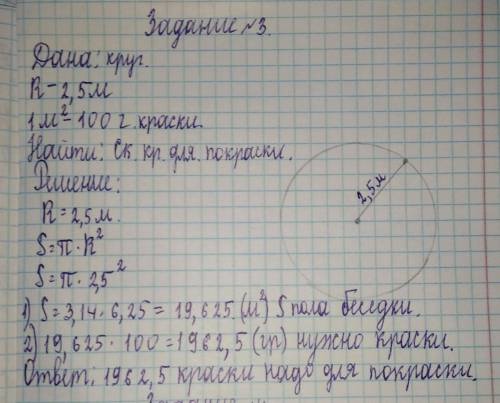 Задание №3.
Дана: круг.
R - 2,5м
1м² - 100 г. краски.
Найти: Ск. кр. для. покраски.
Решение:
R = 2,5м.
2,5м
S = π · R²
S = π · 2,5²
1) S = 3,14 · 6,25 = 19,625 (м²) S пола беседки.
2) 19,625 · 100 = 1962,5 (гр) нужно краски.
Ответ: 1962,5 краски надо для покраски.